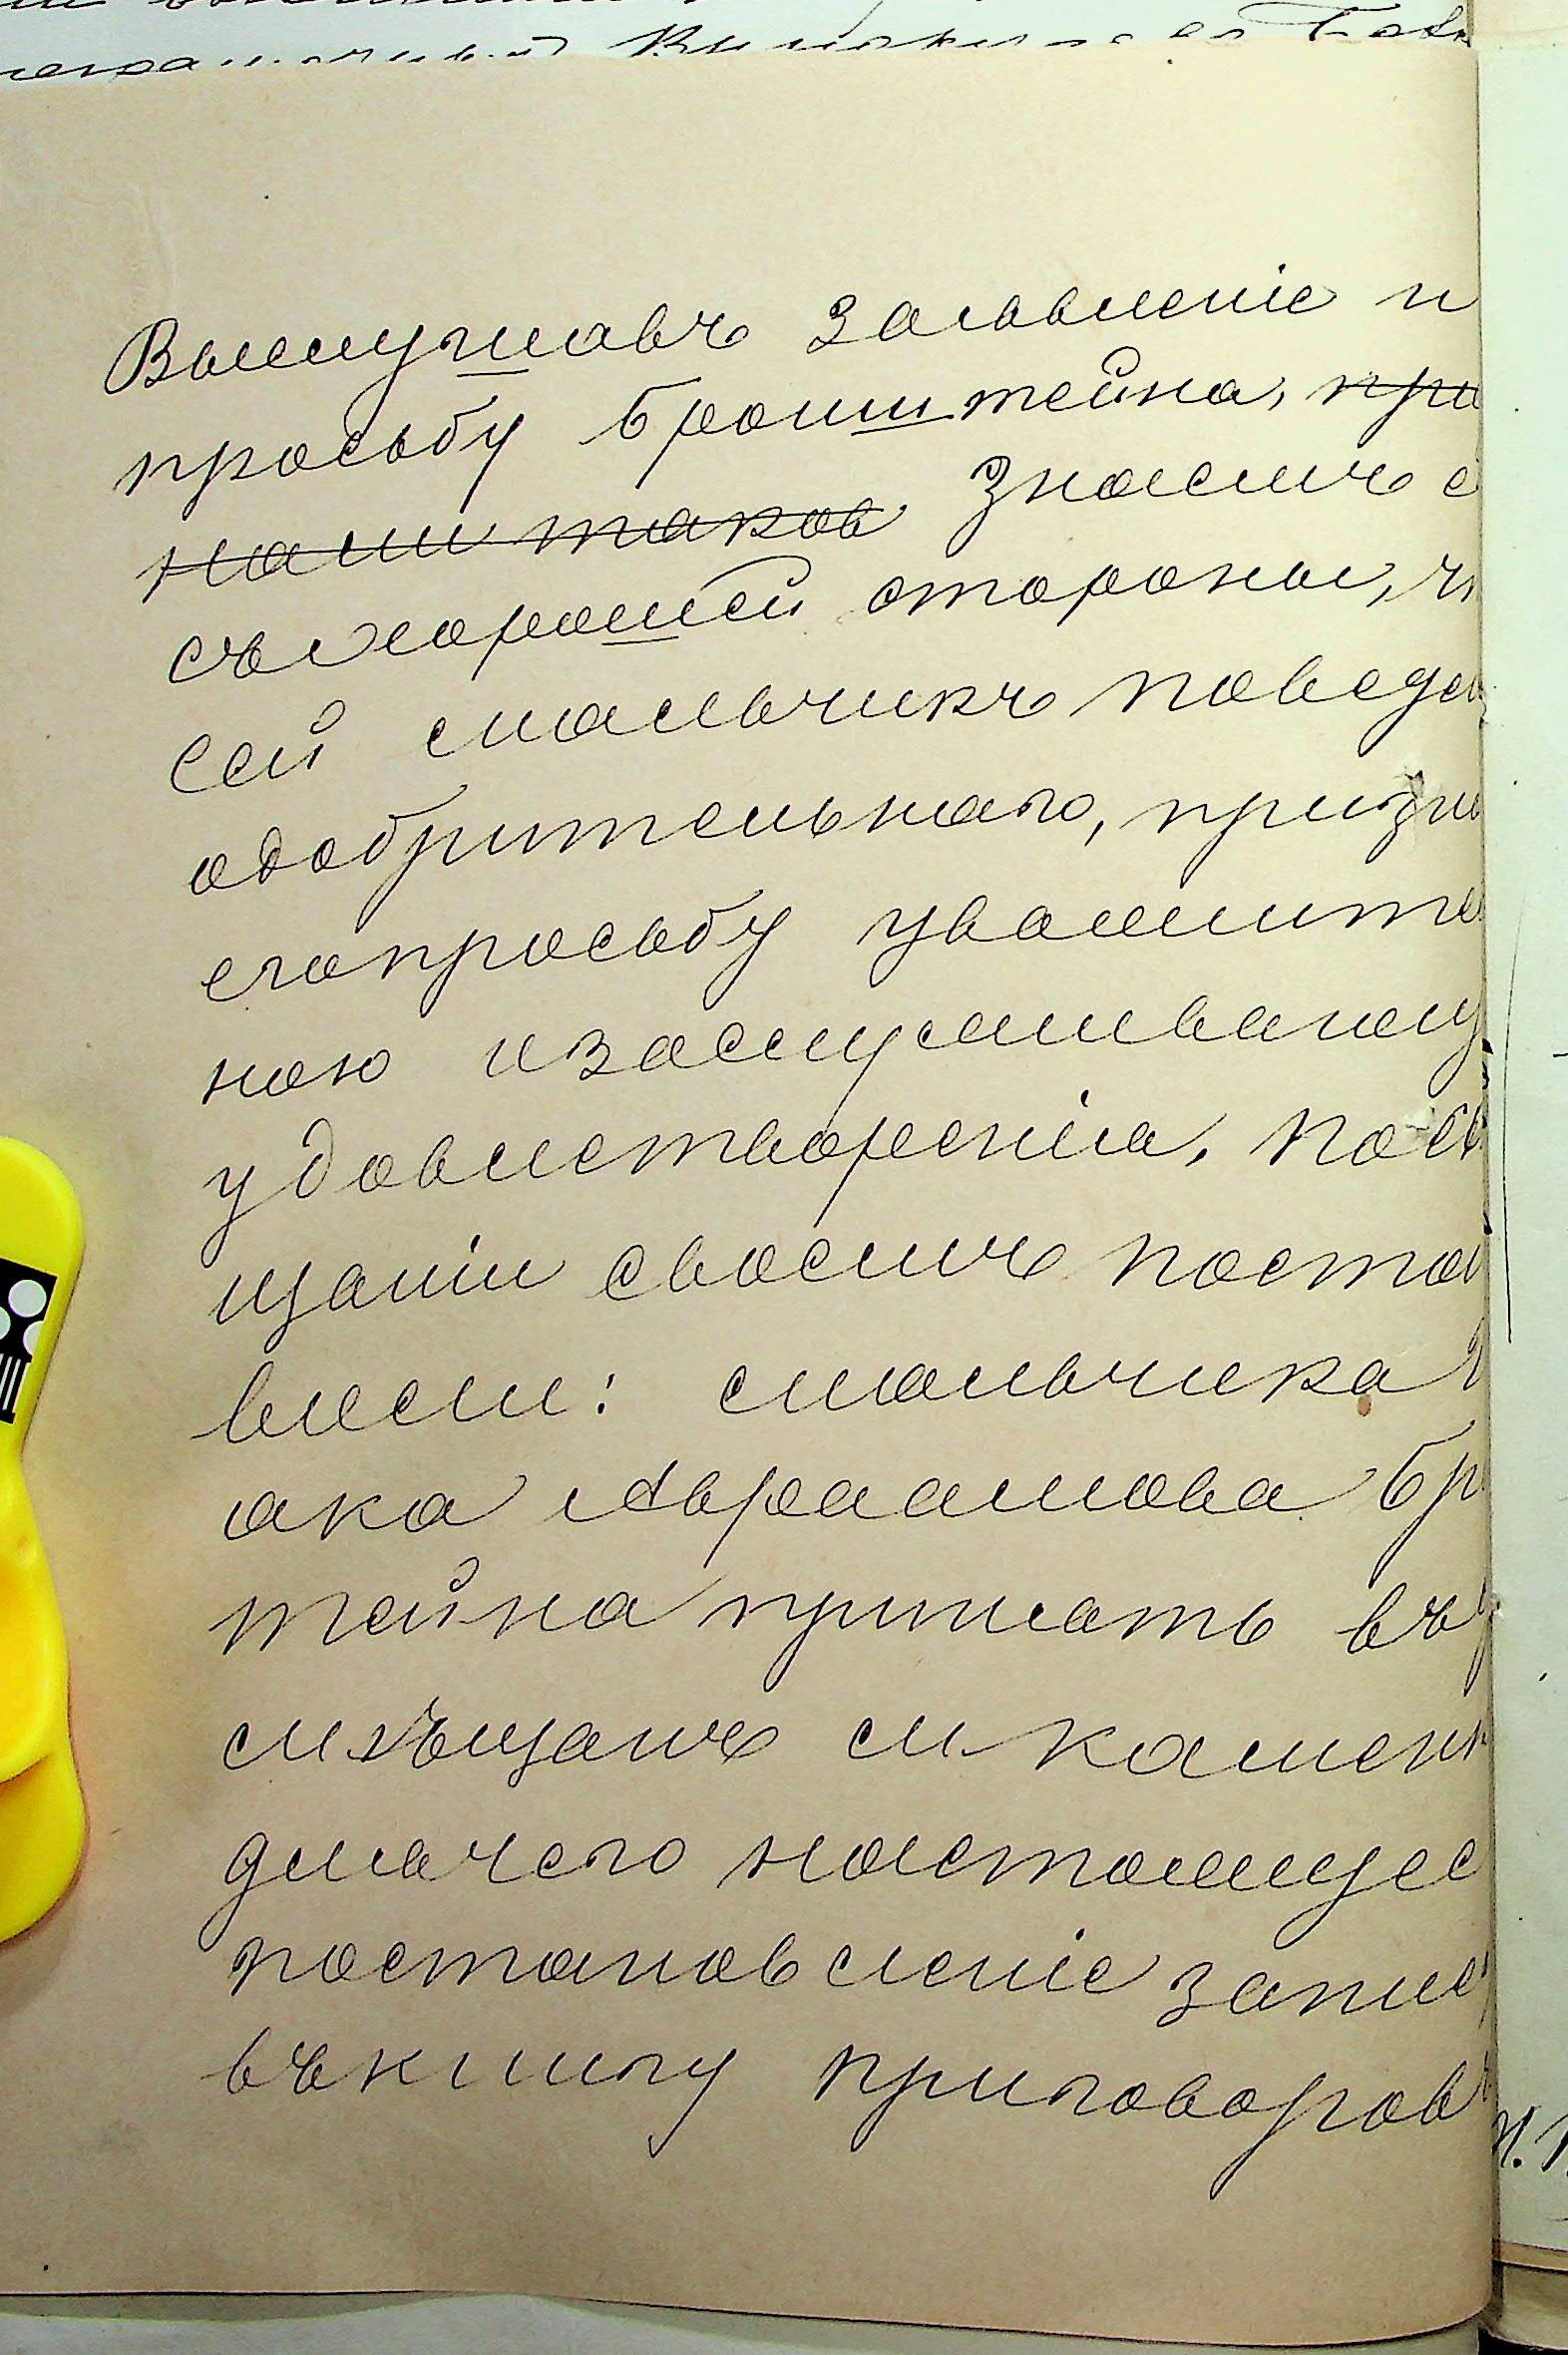 Выслушавъ заявленіе и
просьбу Бронштейна, при
нали таков знаемъ е
съ хорошей стороны, ч
сей мальчикъ поведе
одобрительнаго, призна
его просьбу уважите
ною и заслуживающ
удовлетворенія, по св
щаніи своемъ постан
влены: мальчика
ака Авраамова Бр
тейна принять въ
мѣщане м. Камен
для чего настоящее
постановленіе запис
въ книгу приговоров